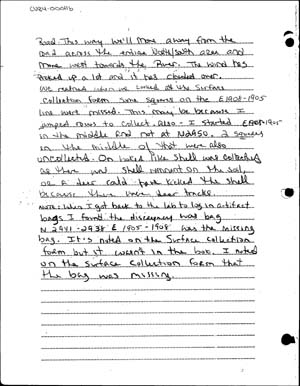 CU24-000116
Road This way we'll move away from the
and across the entire North/South area and
move west towards the River. The wind has
picked up a lot and it has clouded over.
We realized when we looked at the surface
collection form some squares on the E1908-1905
line were missed. This may be because I
jumped rows to collect. Also - I started
in the middle and not at 2 squares
in the middle of that were also
uncollected. On looks like shell was collected
as there was shell on the soil,
or a deer could have kicked the shell
because there were deer tracks.
NOTE: When I got back to the lab to log in artifact
bags I found the discrepancy was bag
N 2941-2938 E 1905-1908 was the missing
bag. It's noted on the Surface Collection
form but it wasn't in the box. I noted
on the Surface Collection form that
the bag was missing.